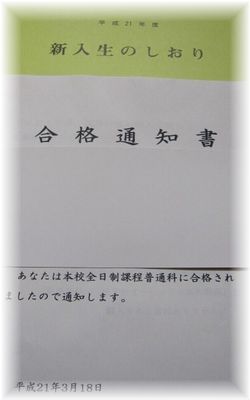 平成21年度
新入生のしおり
合格通知書
あなたは本校全日制課程普通科に合格され
ましたので通知します。
平成21年3月18日